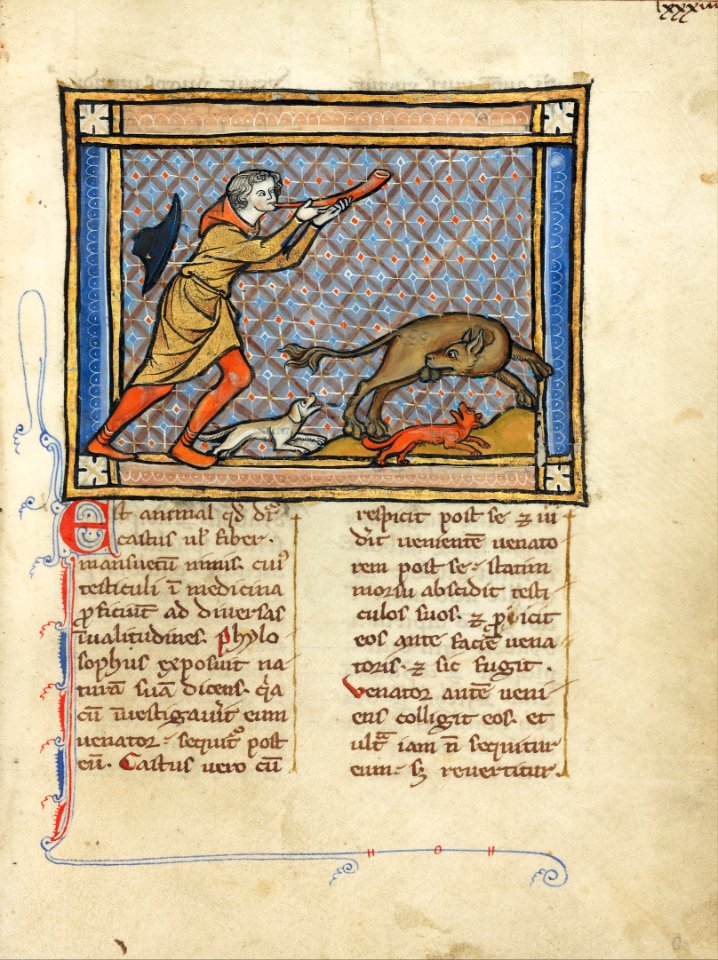 Est animal qd̄ dr̄
castus ul' fiber.
mansuetū nimis. cui⁹
testiculi ī medicina
ꝓficiūt ad diuersas
īualitudines. Phylo
sophus exposuit na
turā suā dicens. qͥa
cū īuestigauit eum
uenator. sequit᷑ post
eū. Castus uero cū
respicit post se ⁊ ui
dit̄ uenientē uenato
rem post se. statim
morsu abscidit testi
culos suos. ⁊ ꝓicit
eos ante faciē uena
toris. ⁊ sic fugit.
Venator autē ueni
ens colligit eos. et
ultᵃ iam n̄ sequitur
eum. sꝫ reuertitur.